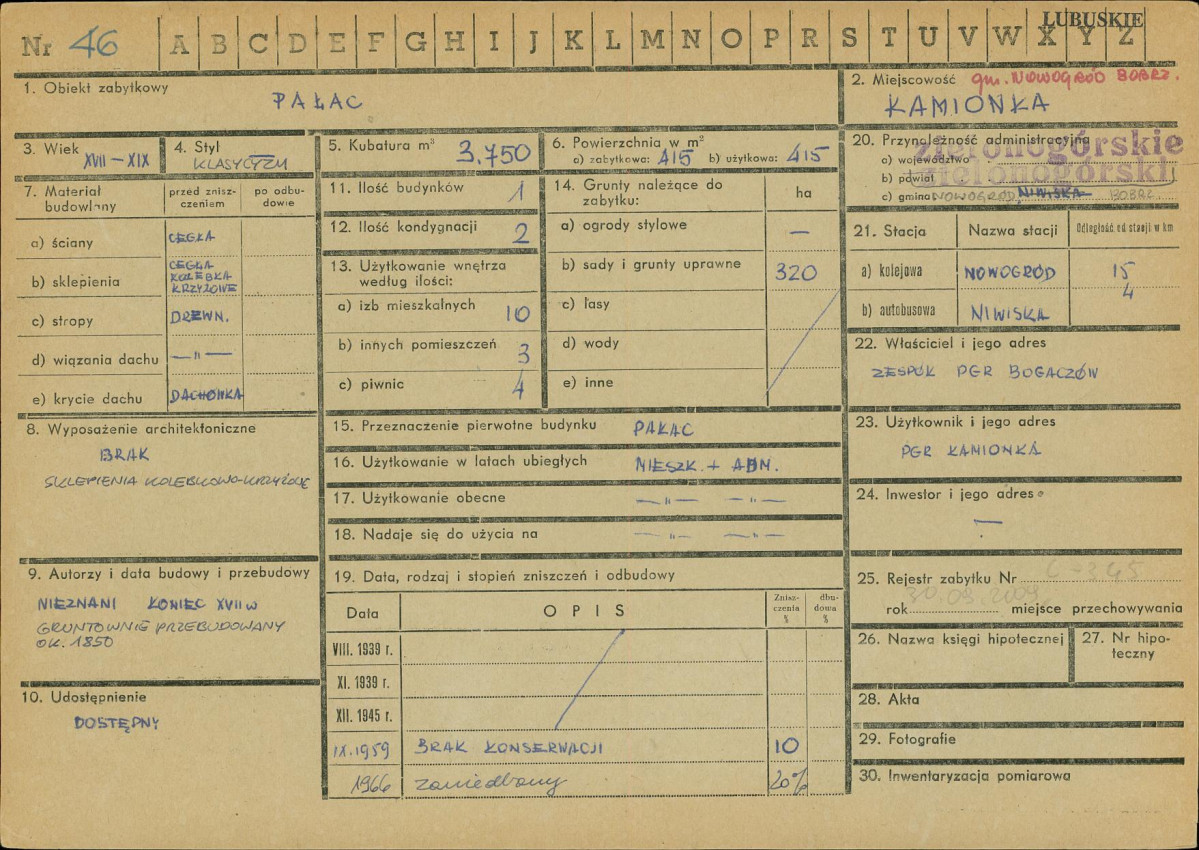 Nr 46 A B C D E F G H I J K L M N O P R S T U V W X Y Z
LUBUSKIE
1. Obiekt zabytkowy
PAŁAC
2. Miejscowość gm. NOWOGRÓD BOBRZ.
KAMIONKA
3. Wiek
XVII – XIX
4. Styl
KLASYCYZM
5. Kubatura m³ 3.750
6. Powierzchnia w m²
a) zabytkowa: 415 b) użytkowa: 415
20. Przynależność administracyjna
a) województwo zielonogórskie
b) powiat zielonogórski
c) gmina NOWOGRÓD NIWISKA BOBRZ.
7. Materiał budowlany
przed zniszczeniem
po odbudowie
a) ściany CEGŁA
b) sklepienia CEGŁA
KOLEBKA
KRZYŻOWE
c) stropy DREWN.
d) wiązania dachu —"—
e) krycie dachu DACHÓWKA
8. Wyposażenie architektoniczne
BRAK
SKLEPIENIA KOLEBKOWO-KRZYŻOWE
9. Autorzy i data budowy i przebudowy
NIEZNANI KONIEC XVII w
GRUNTOWNIE PRZEBUDOWANY
OK. 1850
10. Udostępnienie
DOSTĘPNY
11. Ilość budynków 1
12. Ilość kondygnacji 2
13. Użytkowanie wnętrza
według ilości:
a) izb mieszkalnych 10
b) innych pomieszczeń 3
c) piwnic 4
14. Grunty należące do
zabytku:
ha
a) ogrody stylowe —
b) sady i grunty uprawne 320
c) lasy
d) wody
e) inne
15. Przeznaczenie pierwotne budynku PAŁAC
16. Użytkowanie w latach ubiegłych MIESZK. + ADM.
17. Użytkowanie obecne —"— —"—
18. Nadaje się do użycia na —"— —"—
19. Data, rodzaj i stopień zniszczeń i odbudowy
Data
OPIS
Zniszczenia %
dbudowa %
VIII. 1939 r.
XI. 1939 r.
XII. 1945 r.
IX.1959 BRAK KONSERWACJI 10
1966 zaniedbany 20%
21. Stacja Nazwa stacji Odległość od stacji w km
a) kolejowa NOWOGRÓD 15
b) autobusowa NIWISKA 4
22. Właściciel i jego adres
ZESPÓŁ PGR BOGACZÓW
23. Użytkownik i jego adres
PGR KAMIONKA
24. Inwestor i jego adres
—
25. Rejestr zabytku Nr L-345
rok 30.09.2009 miejsce przechowywania
26. Nazwa księgi hipotecznej
27. Nr hipoteczny
28. Akta
29. Fotografie
30. Inwentaryzacja pomiarowa